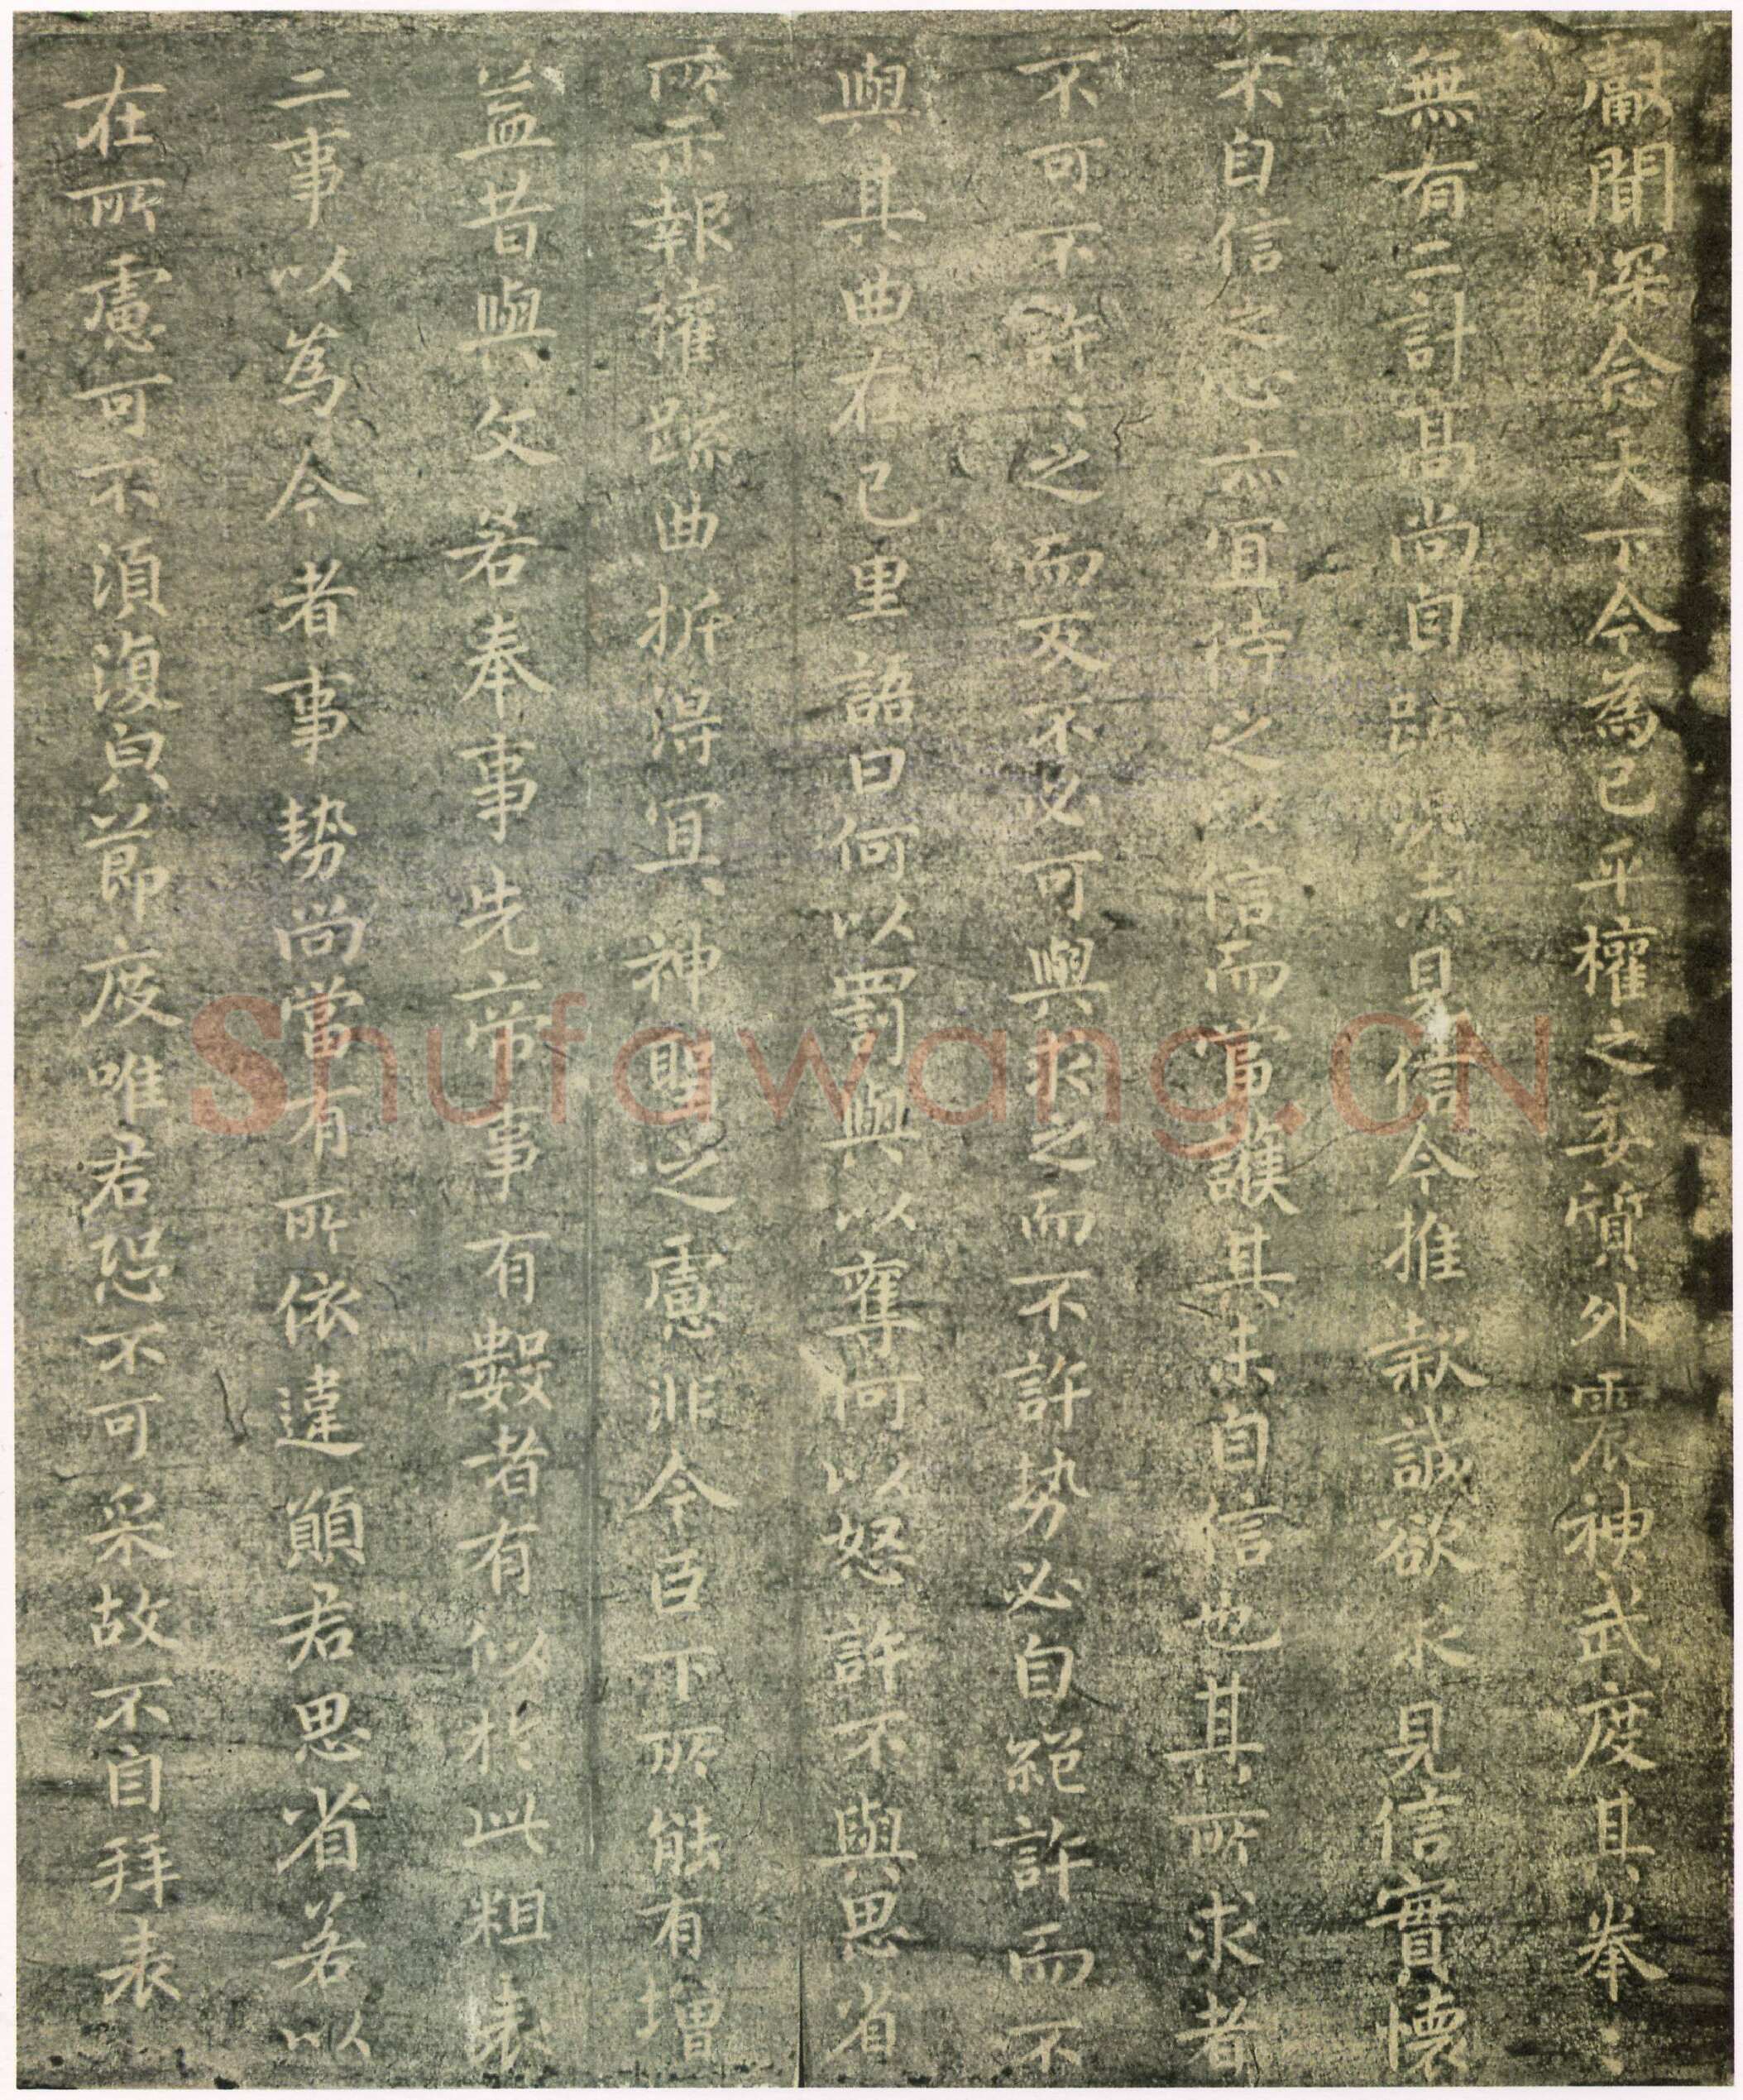 獻聞深念天下今為已平權之委質外震神武度其拳〻
無有二計高尚自疏況未見信今推款誠欲求見信實懷
不自信之心亦宜待之以信而當護其未自信也其所求者
不可不許〻之而反不必可與求之而不許勢必自絕許而不
與其曲在己里語曰何以罰與以奪何以怒許不與思省
所示報權疏曲折得宜神聖之慮非今臣下所能有增
益昔與文若奉事先帝事有數者有似於此粗表
二事以為今者事勢尚當有所依違願君思省若以
在所慮可不須復貞節度唯君恐不可采故不自拜表
Shufawang.CN